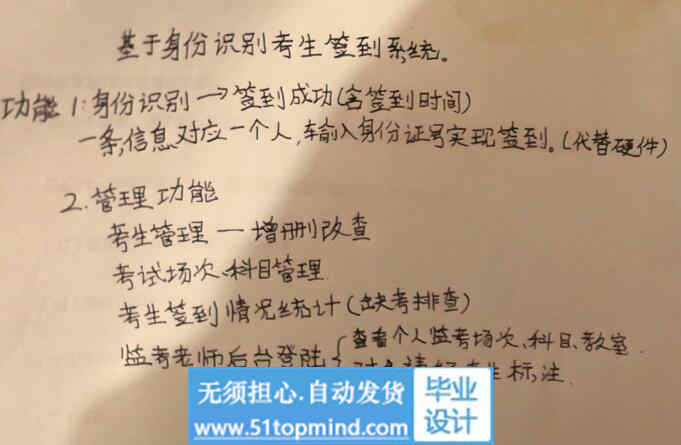 基于身份识别考生签到系统。
功能1:身份识别→签到成功(含签到时间)
一条信息对应一个人,输入身份证号实现签到。(代替硬件)
2.管理功能
考生管理—增删改查
考试场次、科目管理
考生签到情况统计(缺考排查)
监考老师后台登陆{查看个人监考场次、科目、教室.
标注.
无须担心.自动发货
www.51topmind.com
毕业
设计